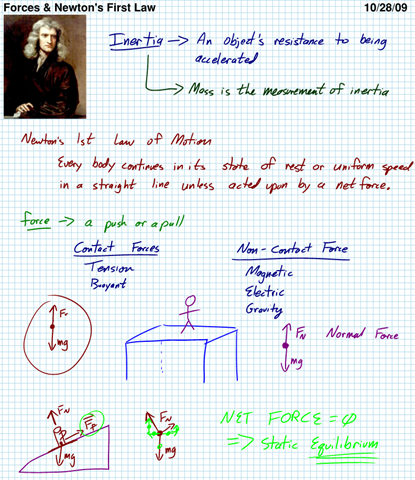 Forces & Newton's First Law 10/28/09
Inertia → An object's resistance to being
accelerated
→ Mass is the measurement of inertia
Newton's 1st Law of Motion
Every body continues in its state of rest or uniform speed
in a straight line unless acted upon by a net force.
Force → a push or a pull
Contact Forces Non-Contact Force
Tension Magnetic
Buoyant Electric
Gravity
mg
F_N Normal Force
mg
F_N
F_f
mg
F_N
mg
NET FORCE = φ
⇒ Static Equilibrium